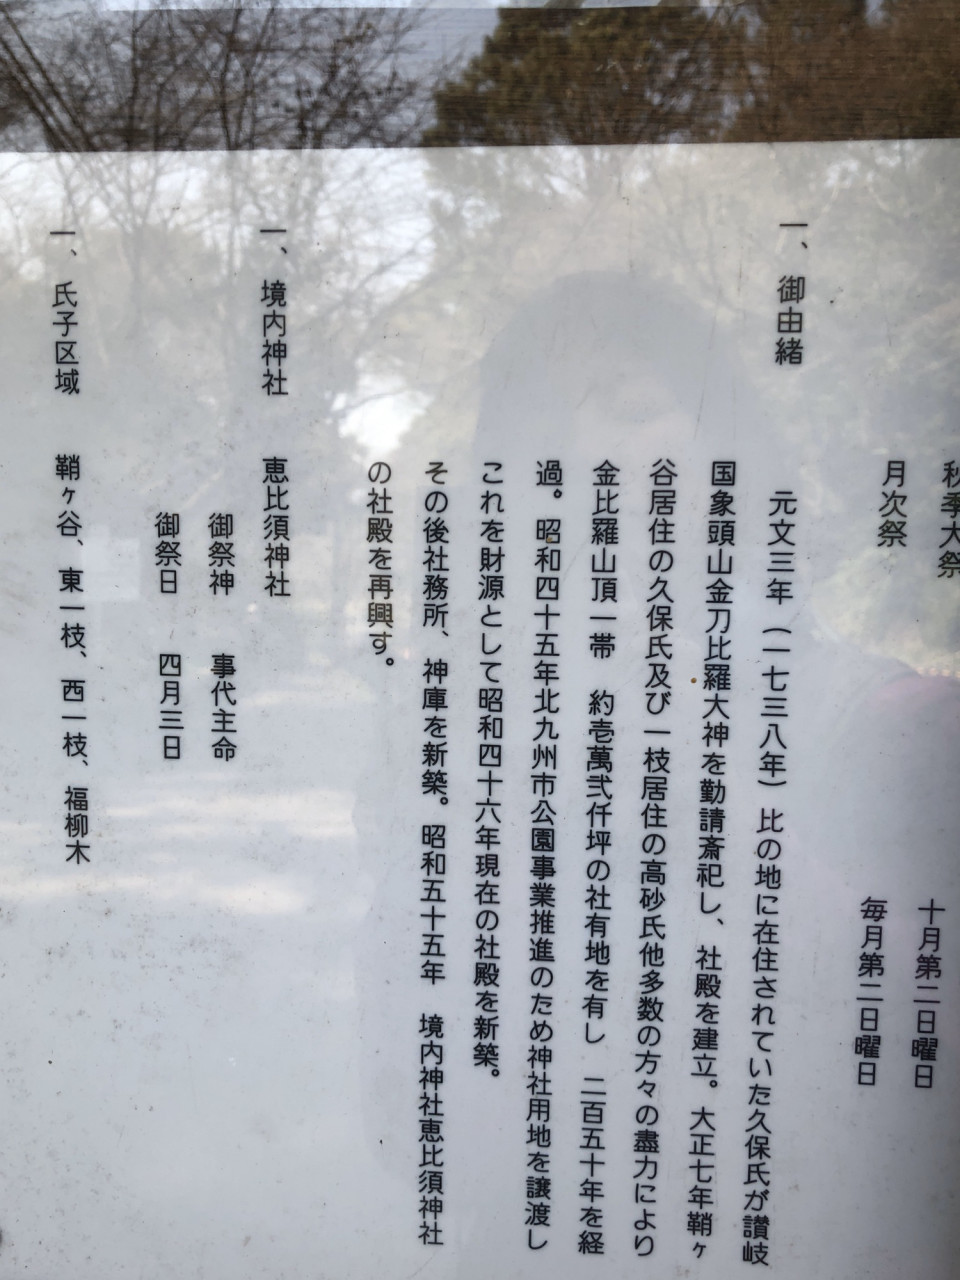 秋季大祭 十月第二日曜日
月次祭 毎月第二日曜日
一、御由緒
元文三年（一七三八年）比の地に在住されていた久保氏が讃岐
国象頭山金刀比羅大神を勤請斎祀し、社殿を建立。大正七年鞘ヶ
谷居住の久保氏及び一枝居住の高砂氏他多数の方々の盡力により
金比羅山頂一帯 約壱萬弐仟坪の社有地を有し 二百五十年を経
過。昭和四十五年北九州市公園事業推進のため神社用地を譲渡し
これを財源として昭和四十六年現在の社殿を新築。
その後社務所、神庫を新築。昭和五十五年 境内神社恵比須神社
の社殿を再興す。
一、境内神社 恵比須神社
御祭神 事代主命
御祭日 四月三日
一、氏子区域 鞘ヶ谷、東一枝、西一枝、福柳木